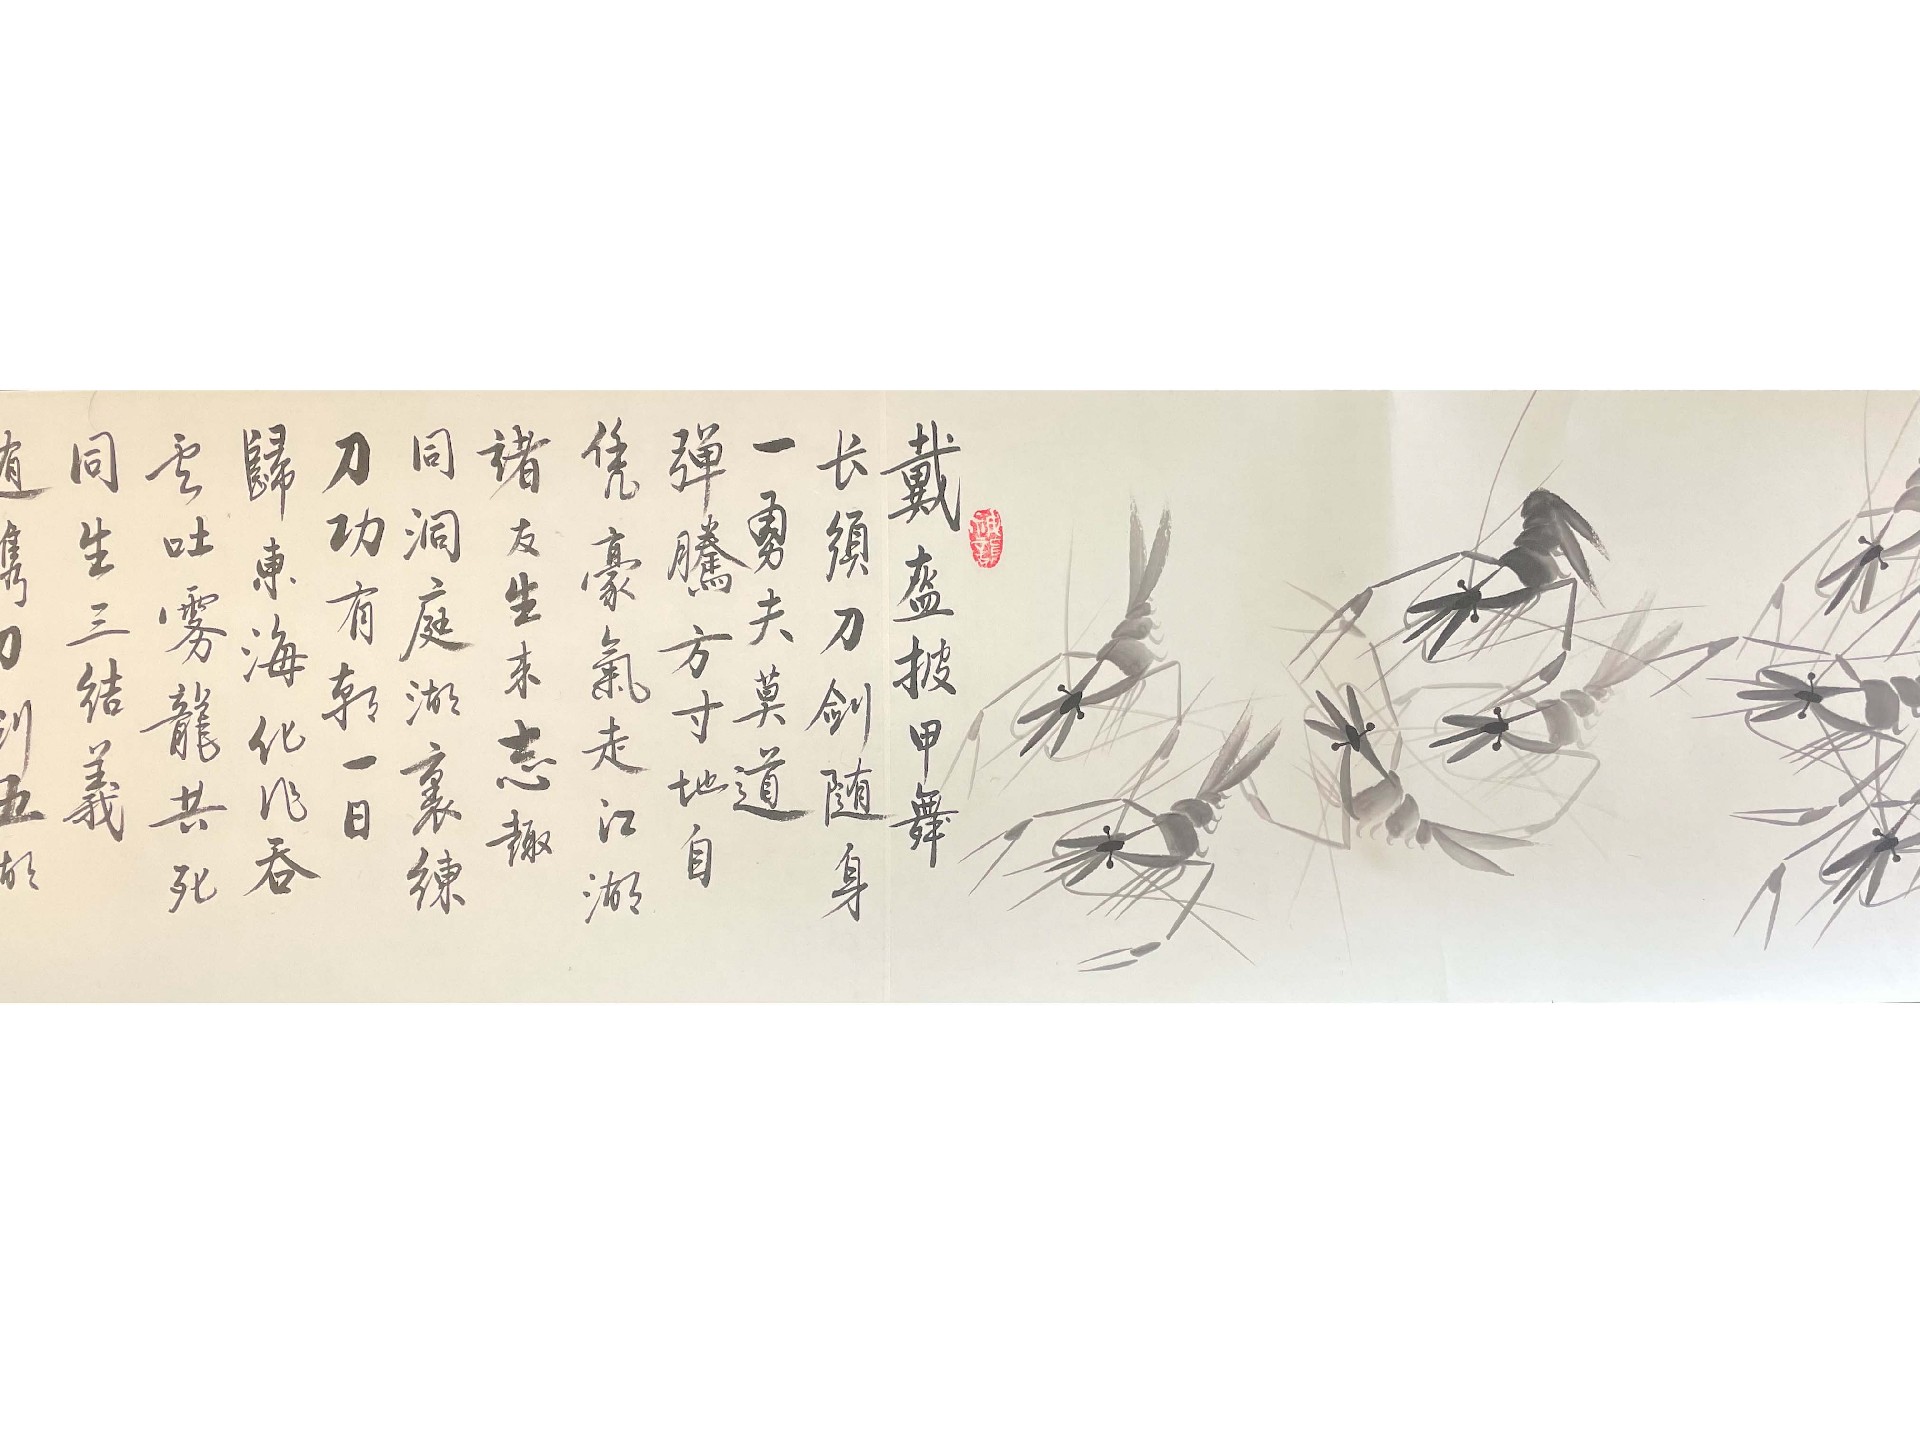 戴盔披甲舞
长須刀劍随身
一勇夫莫道
彈騰方寸地自
凭豪氣走江湖
諸友生来志趣
同洞庭湖裏練
刀功有朝一日
歸東海化作吞
雲吐霧龍共死
同生三結義
道雋刀劍五湖